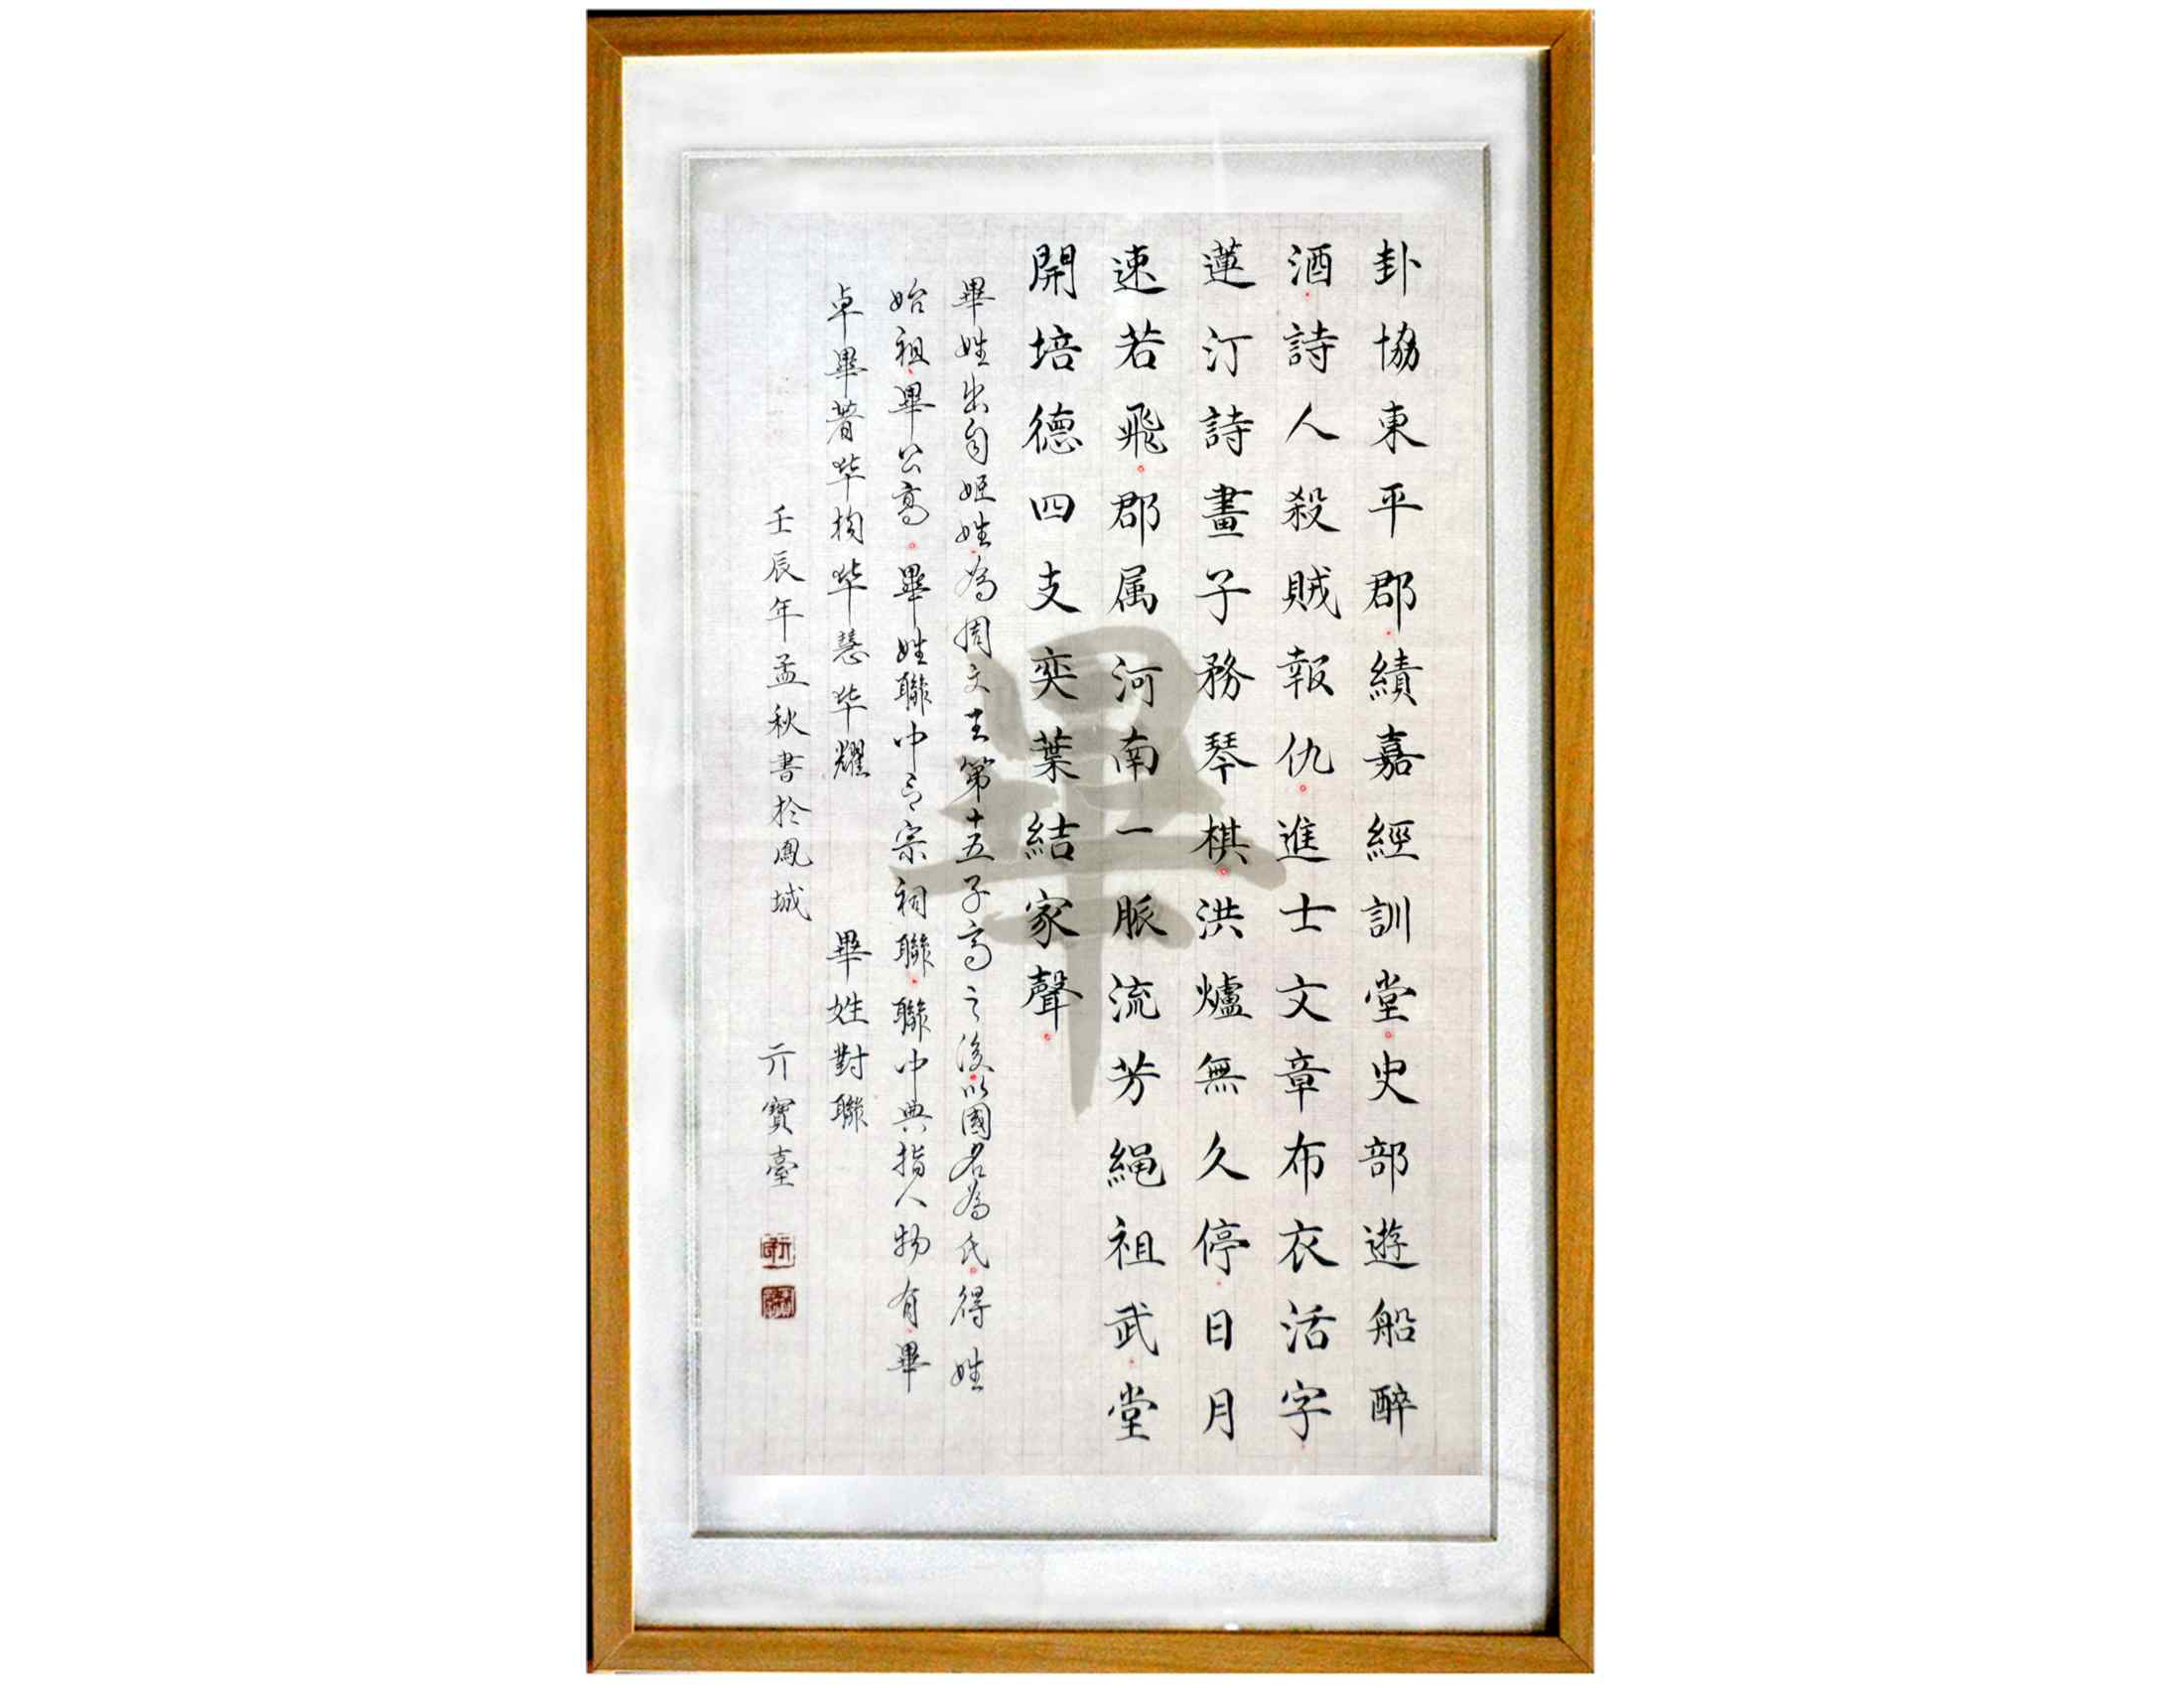 卦協東平郡績嘉經訓堂。史部遊船醉
酒詩人殺賊報仇。進士文章布衣活字
蓮汀詩畫子務琴棋。洪爐無久停日月
速若飛。郡属河南一脈流芳繩祖武堂
開培德四支奕葉結家聲
畢姓出自姬姓為周文王第十五子高之後以國名為氏。得姓
始祖畢公高。畢姓聯中之宗祠聯聯中典指人物有畢
卓畢著毕构毕慧毕耀 畢姓對聯
壬辰年孟秋書於鳳城 亓寶臺
畢